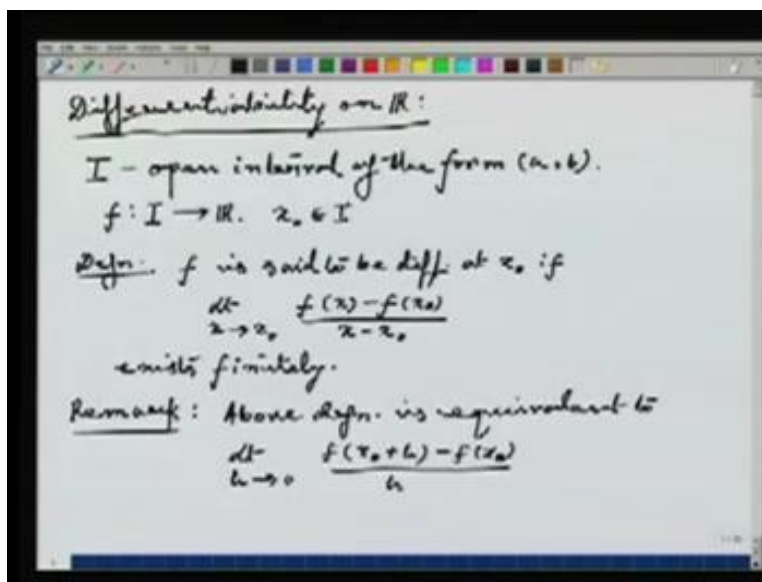 Differentiability on ℝ:
I - open interval of the form (a,b).
f: I → ℝ. x₀ ∈ I
Defn. f is said to be diff. at x₀ if
lt x→x₀ (f(x) - f(x₀))/(x - x₀)
exists finitely.
Remark: Above defn. is equivalent to
lt h→0 (f(x₀+h) - f(x₀))/h